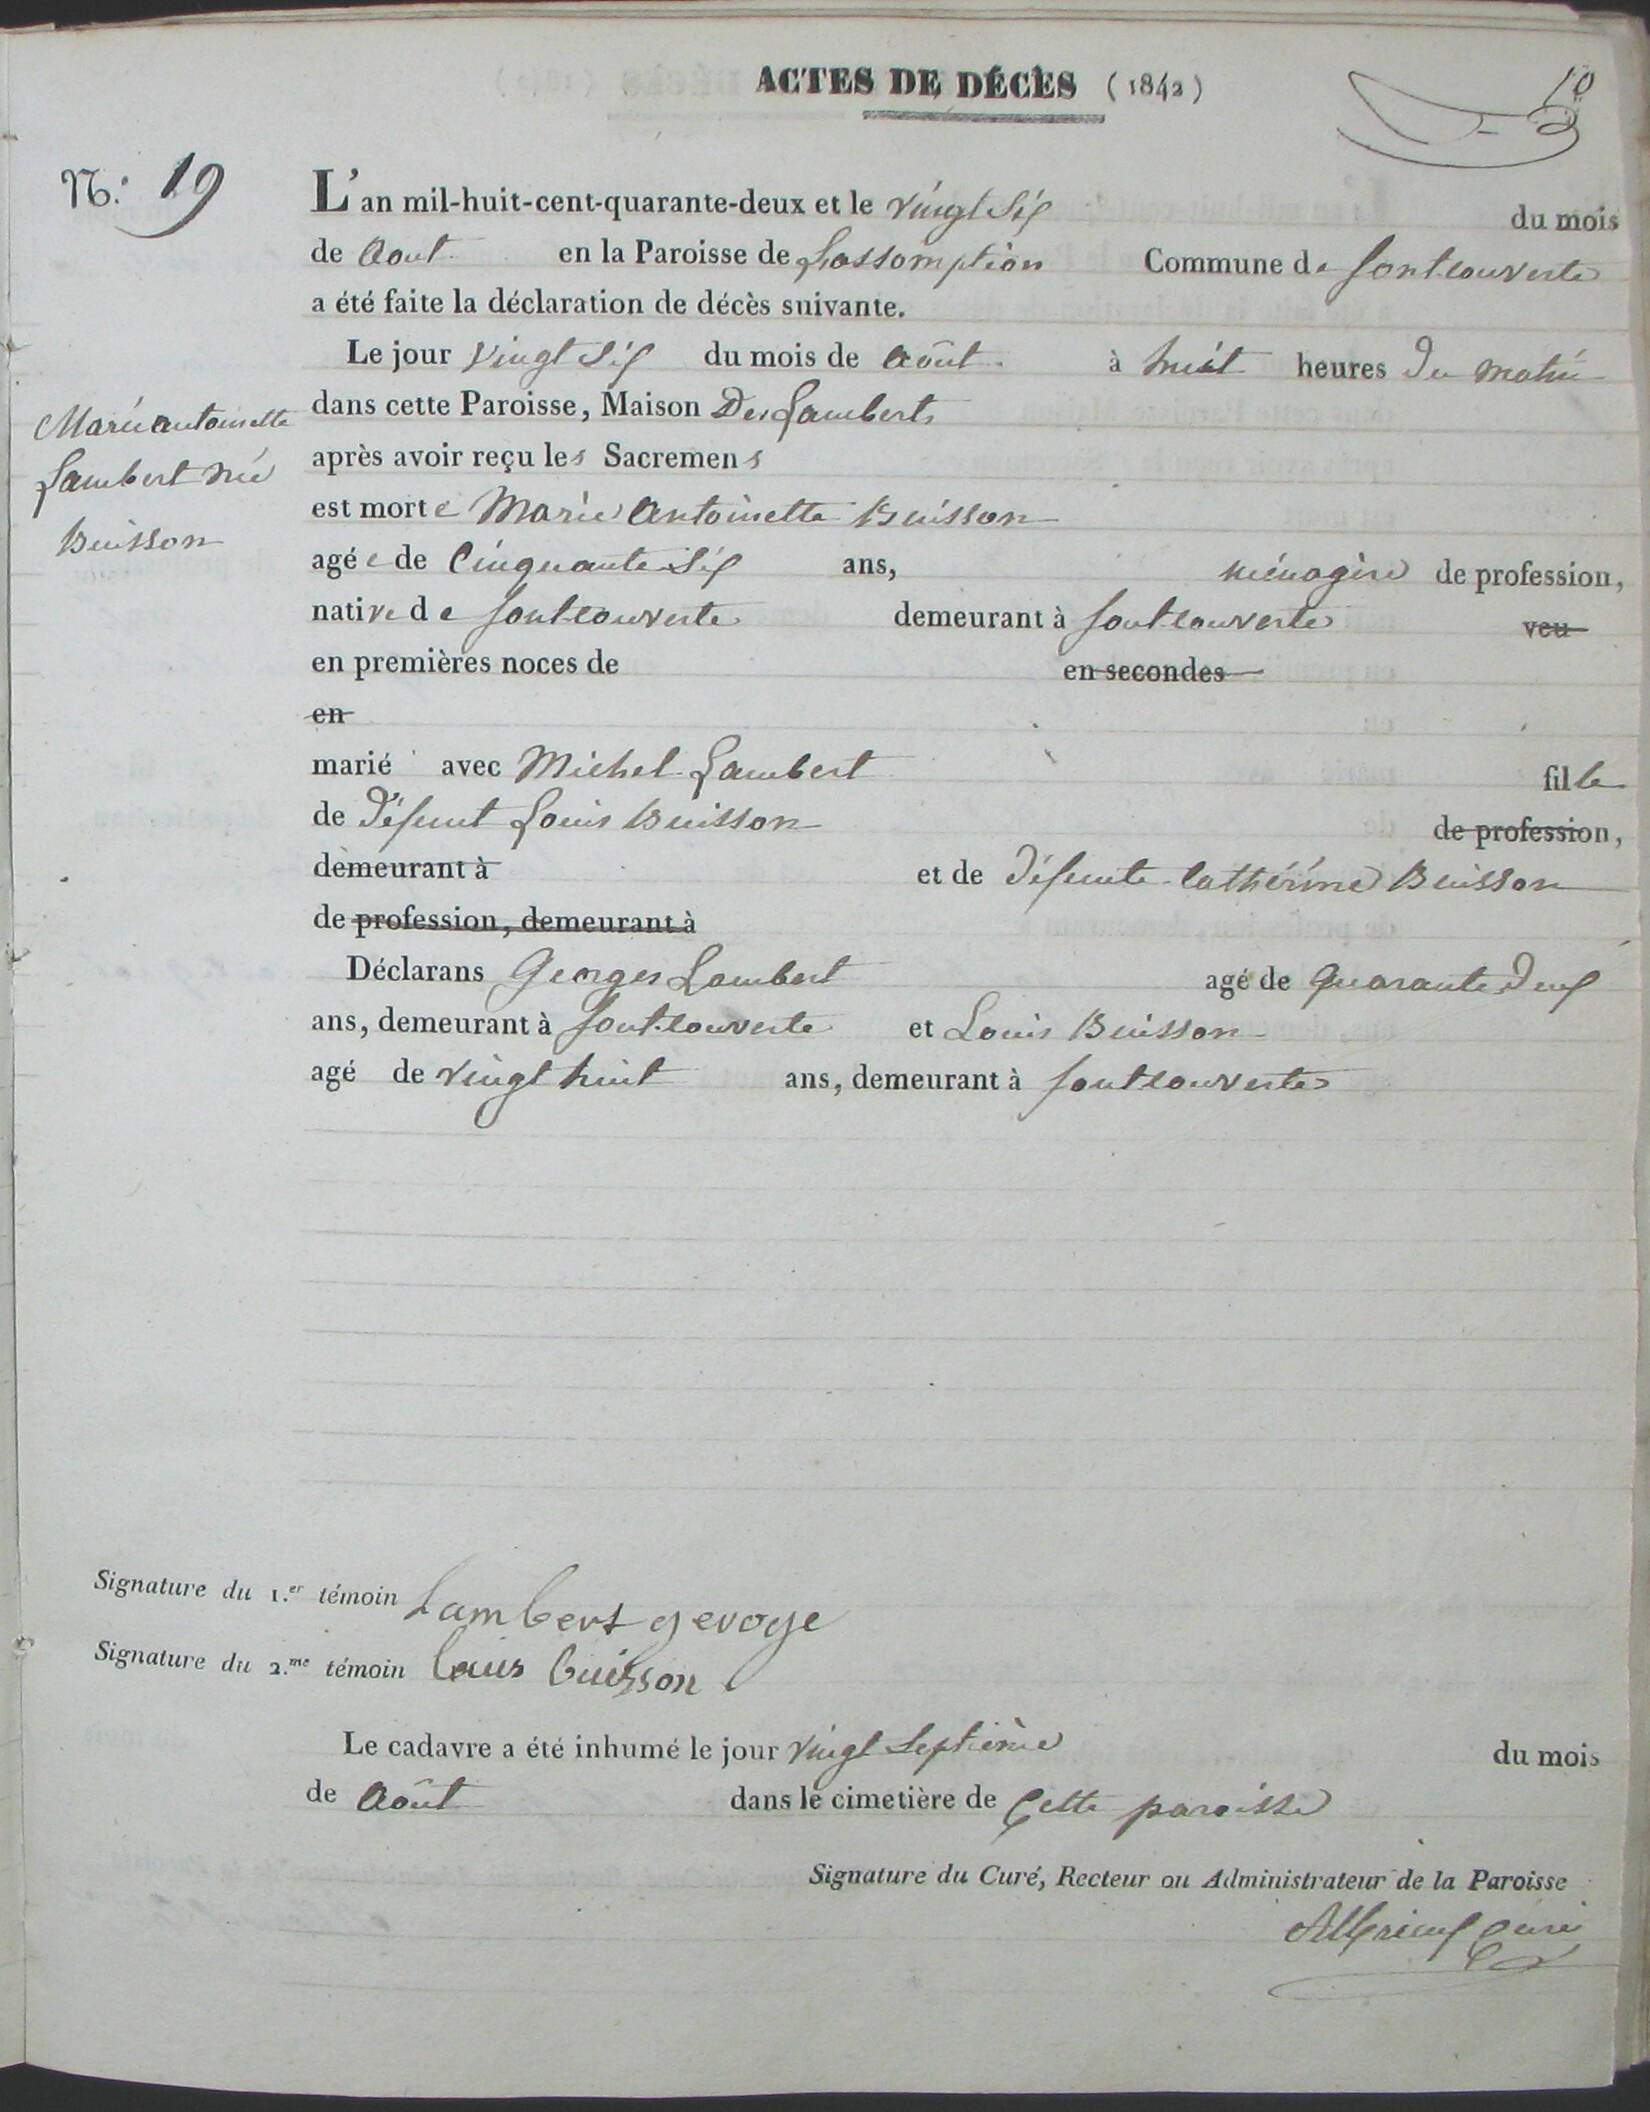 ACTES DE DÉCÈS (1842)
10
N.: 19
L'an mil-huit-cent-quarante-deux et le vingt six du mois
de aout en la Paroisse de Lassomption Commune de fontcouverte
a été faite la déclaration de décès suivante.
Le jour vingt six du mois de août à huit heures du matin
dans cette Paroisse, Maison Des Lamberts
après avoir reçu les Sacremens
est morte Marie Antoinette Buisson
agée de Cinquante six ans, ménagère de profession,
native de fontcouverte demeurant à fontcouverte veu
en premières noces de en secondes
en
marié avec Michel Lambert fille
de défunt Louis Buisson de profession,
demeurant à et de défunte Cathérine Buisson
de profession, demeurant à
Déclarans Georges Lambert agé de quarante deux
ans, demeurant à fontcouverte et Louis Buisson
agé de vingt huit ans, demeurant à fontcouverte
Marie antoinette
Lambert née
Buisson
Signature du 1.er témoin Lambert geroge
Signature du 2.me témoin louis buisson
Le cadavre a été inhumé le jour vingt septième du mois
de Août dans le cimetière de Cette paroisse
Signature du Curé, Recteur ou Administrateur de la Paroisse
curé